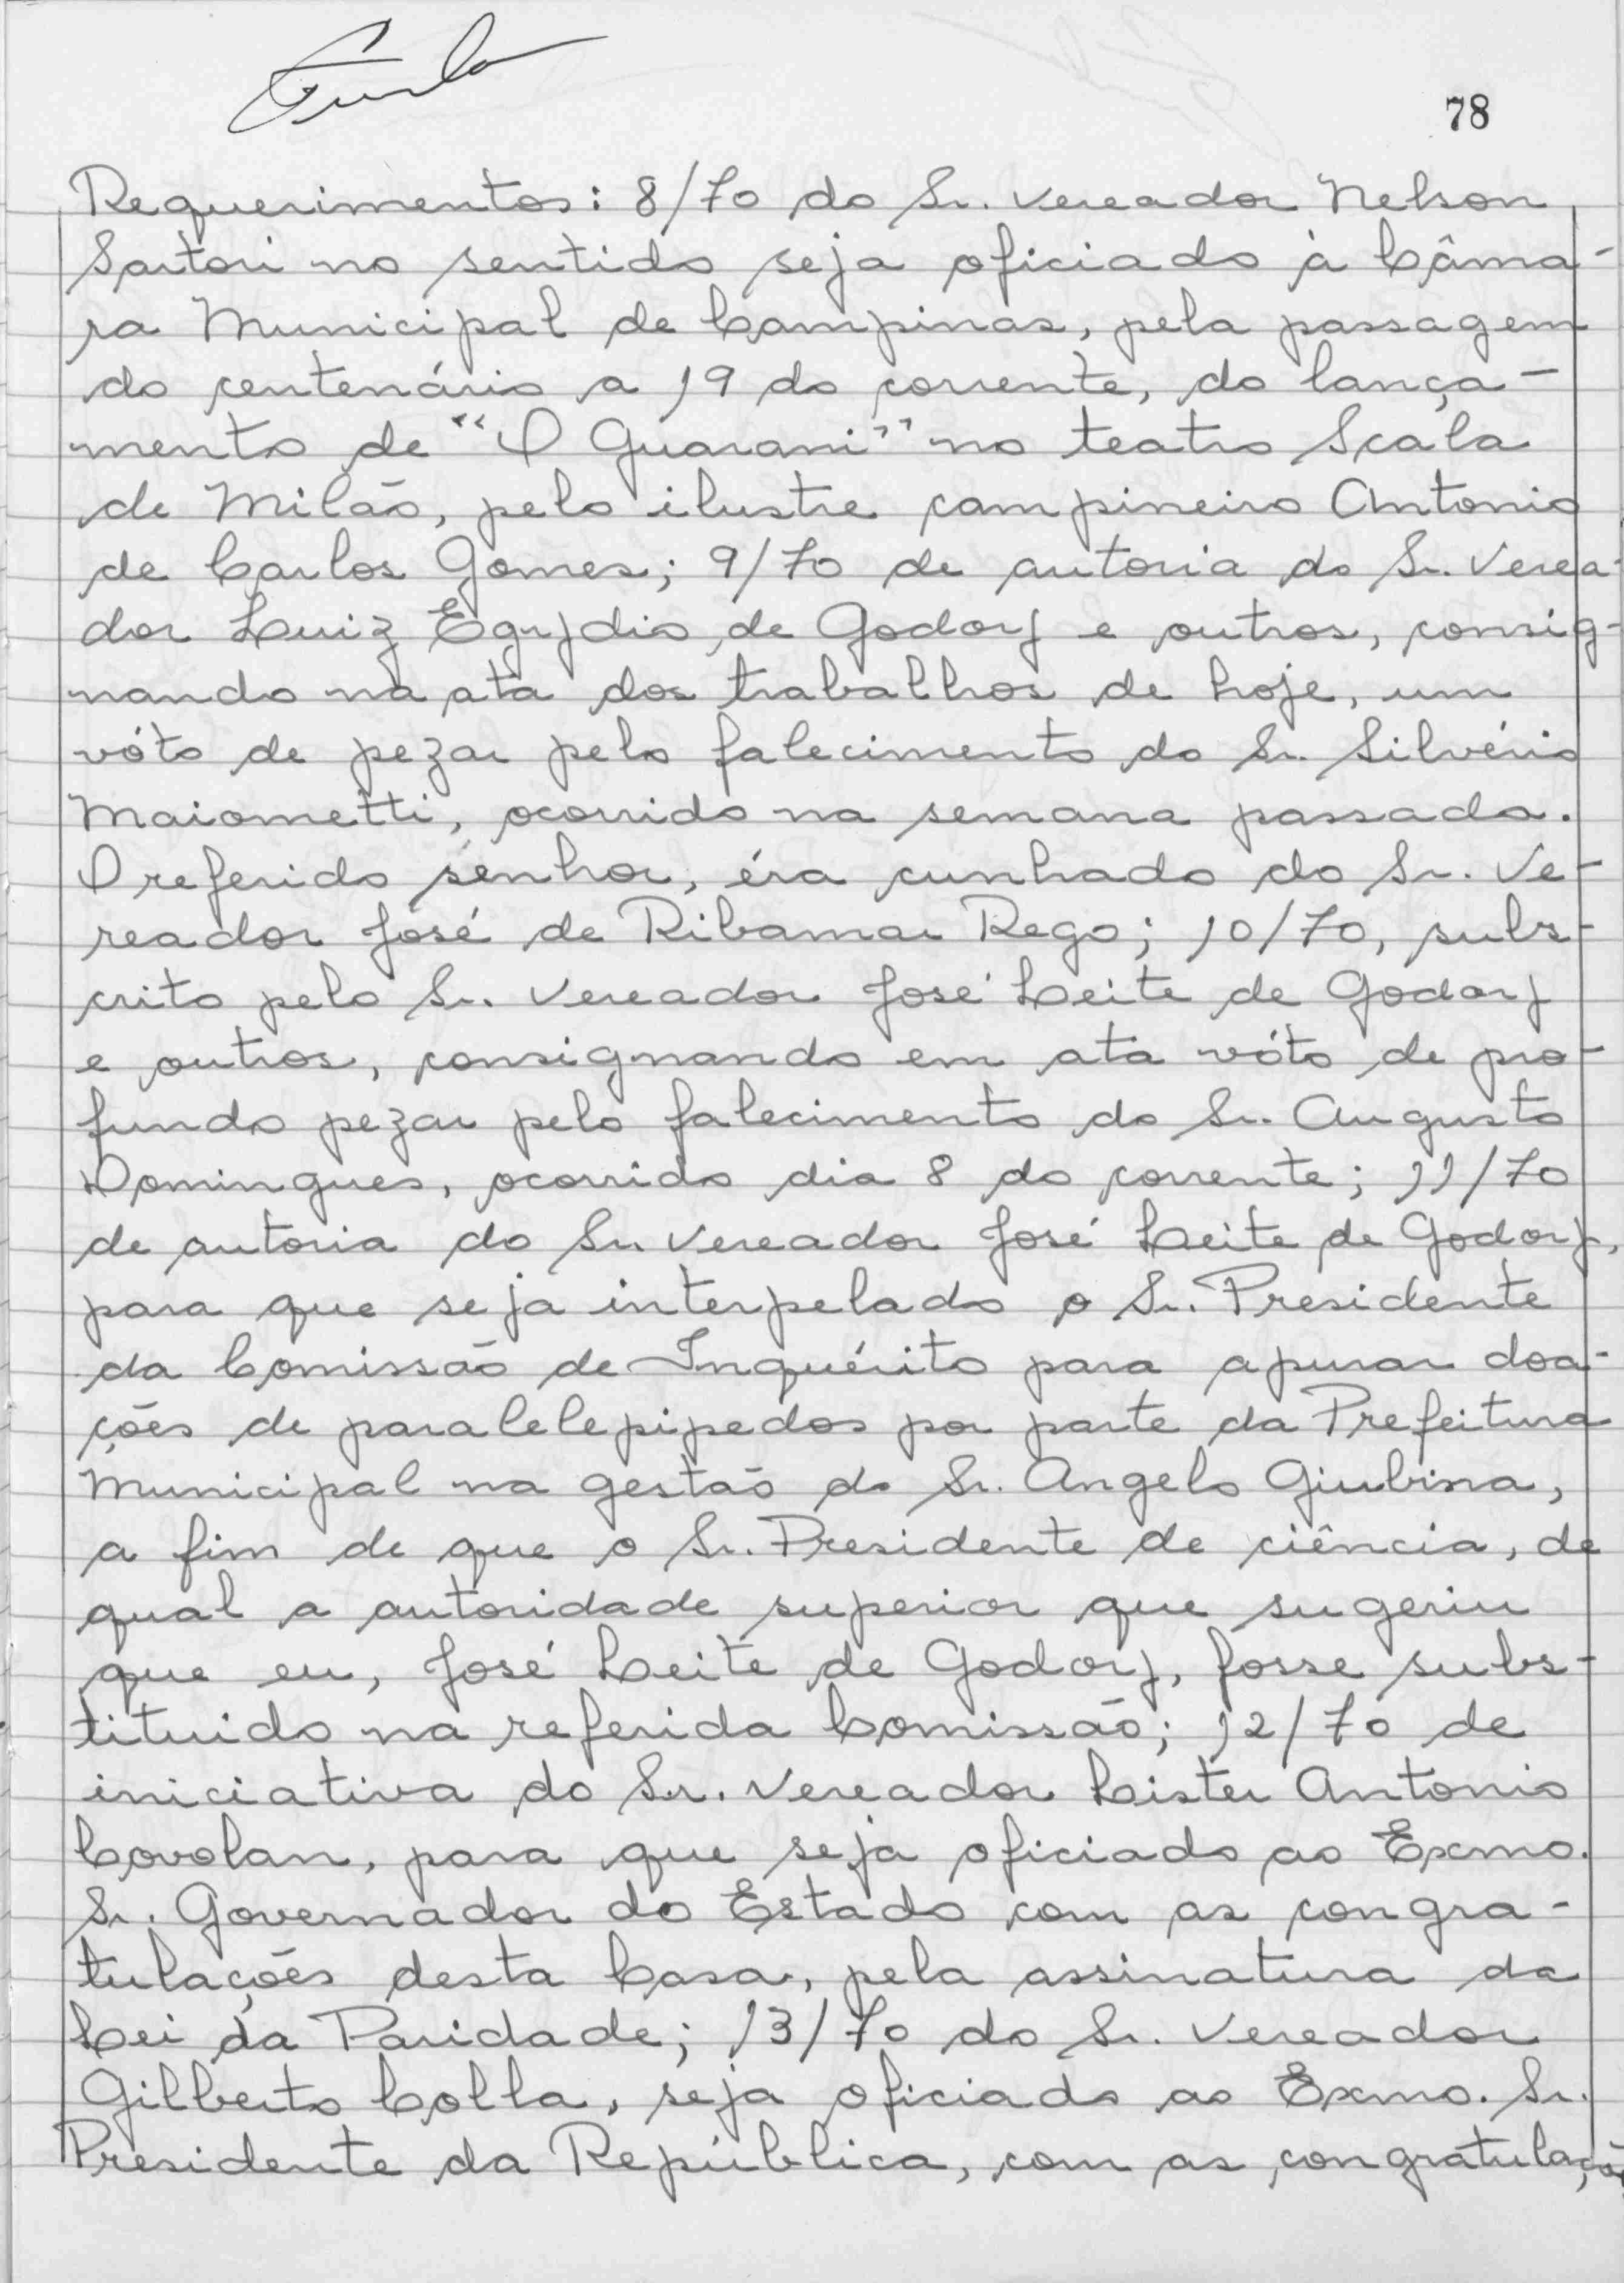 78
Requerimentos: 8/70 do Sr. Vereador Nelson
Sartori no sentido seja oficiado à Câma-
ra Municipal de Campinas, pela passagem
do centenário a 19 do corrente, do lança-
mento de "O Guarani" no teatro Scala
de Milão, pelo ilustre campineiro Antonio
de Carlos Gomes; 9/70 de autoria do Sr. Verea-
dor Luiz Egydio de Godoy e outros, consig-
nando na ata dos trabalhos de hoje, um
vóto de pezar pelo falecimento do Sr. Silvério
Maiometti, ocorrido na semana passada.
O referido senhor, éra cunhado do Sr. Ve-
reador José de Ribamar Rego; 10/70, subs-
crito pelo Sr. Vereador José Leite de Godoy
e outros, consignando em ata vóto de pro-
fundo pezar pelo falecimento do Sr. Augusto
Domingues, ocorrido dia 8 do corrente; 11/70
de autoria do Sr. Vereador José Leite de Godoy,
para que seja interpelado o Sr. Presidente
da Comissão de Inquérito para apurar doa-
ções de paralelepipedos por parte da Prefeitura
Municipal na gestão do Sr. Angelo Giubina,
a fim de que o Sr. Presidente de ciência, de
qual a autoridade superior que sugeriu
que eu, José Leite de Godoy, fosse subs-
tituido na referida Comissão; 12/70 de
iniciativa do Sr. Vereador Lister Antonio
Covolan, para que seja oficiado ao Exmo.
Sr. Governador do Estado com as congra-
tulações desta Casa, pela assinatura da
Lei da Paridade; 13/70 do Sr. Vereador
Gilberto Colla, seja oficiado ao Exmo. Sr.
Presidente da República, com as congratulaçoẽs